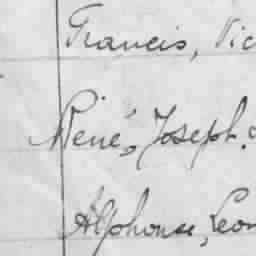 Francis, Vic
René, Joseph.
Alphonse, Leon